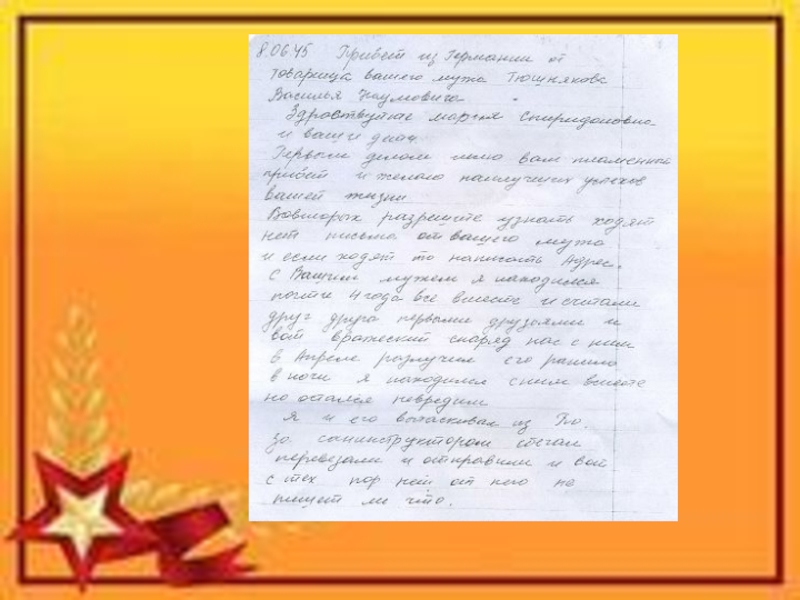 8.06.45 Привет из Германии от
товарища вашего мужа Тюшнякова
Василья Наумовича
Здраствуйте мария Спиридоновна
и ваши дети
Первым делом шлю вам пламенный
привет и желаю наилучших успехов
вашей жизни
Вовторых разрешите узнать ходят
нет письма от вашего мужа
и если ходят то написать Адрес.
С Вашим мужем я находился
почти 4 года все вместе и считали
друг друга первыми друзьями и
вот вражеский снаряд нас с ним
в Апреле разлучил его ранило
в ноги я находился с ним вместе
но остался невредим
Я и его вытаскивал из
За санинструктором сбегал
перевезали и отправили и вот
с тех пор нет от него не
пишет ли что.